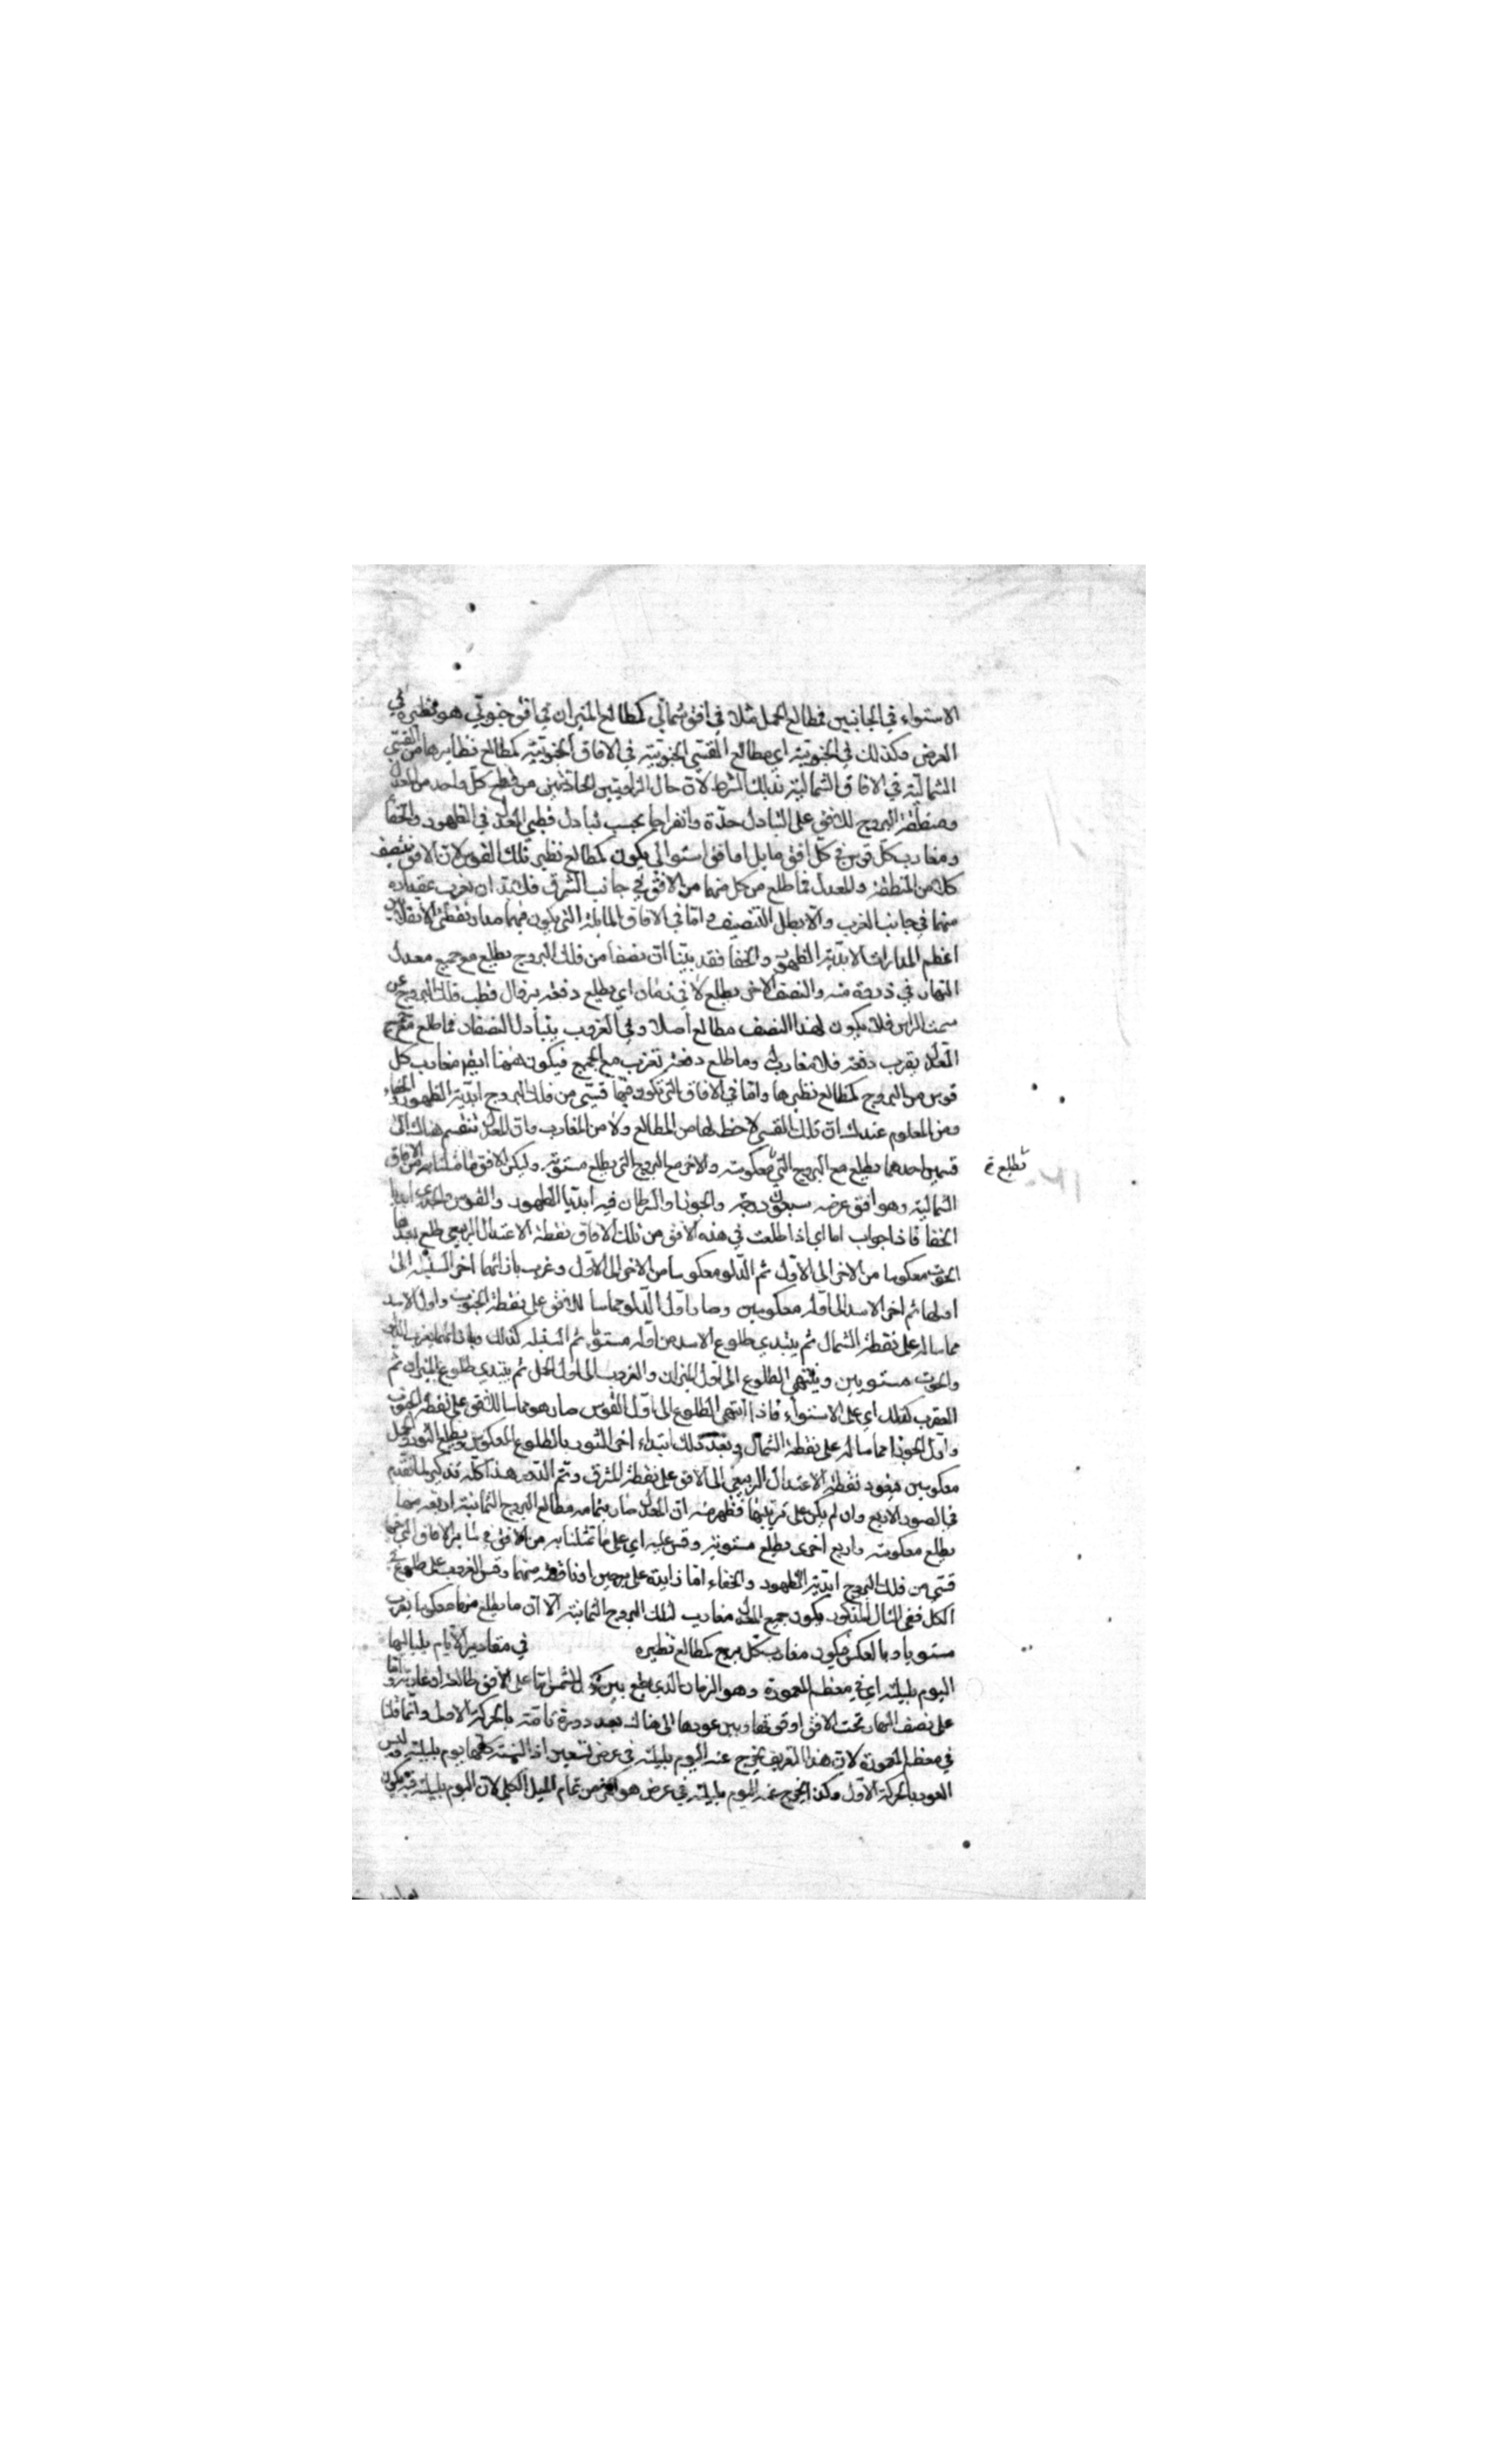 الاستواء في الجانبين فمطالع الحمل مثلا في افق شمالي كمطالع الميزان في افق جنوبي هو نظيره في
العرض وكذلك في الجنوبية اي مطالع القسي الجنوبية في الافاق الجنوبية كمطالع نظايرها من القسي
الشمالية في الافاق الشمالية بذلك الشرط لان حال الزاويتين الحادثتين من قطع كل واحد من المعدل
ومنطقة البروج للافق على التبادل حدة وانفراجا بحسب تبادل قطبي المعدل في الظهور والخفا
ومغارب كل قوس في كل افق مايل اما افق استوائي يكون كمطالع نظير تلك القوس لان الافق ينصف
كلا من المنطقة والمعدل فما طلع من كل منهما من الافق في جانب الشرق فلا بد ان يغرب مقداره
منهما في جانب الغرب والا بطل التنصيف واما في الافاق المايلة التي يكون فيها مدار نقطتي الانقلابين
اعظم المدارات الابدية الظهور والخفا فقد بينا ان نصفا من فلك البروج يطلع مع جميع معدل
النهار في دورة منه والنصف الاخر يطلع لا في زمان اي يطلع دفعة بزوال قطب فلك البروج عن
سمت الراس فلا يكون لهذا النصف مطالع اصلا وفي الغروب يتبادل النصفان فما طلع مع جميع
المعدل يغرب دفعة فلا مغارب له وما طلع دفعة تغرب مع الجميع فيكون ههنا ايضا مغارب كل
قوس من البروج كمطالع نظيرها واما في الافاق التي تكون فيها قسي من فلك البروج ابدية الظهور والخفاء
ومن المعلوم عندك ان تلك القسي لا حظ لها من المطالع ولا من المغارب وان المعدل تنقسم هناك الى
قسمين احدهما يطلع مع البروج التي معكوسة والاخر مع البروج التي يطلع مستوية وليكن الافق ما مثلنا به من الافاق
تطلع
الشمالية وهو افق عرضه سبعون درجة والجوزا والسرطان فيه ابديا الظهور والقوس والجدي ابديا
الخفا فاذا جواب اما اي اذا طلعت في هذه الافق من تلك الافاق نقطة الاعتدال الربيعي طلع بعدها
الحوت معكوسا من الاخر الى الاول ثم الدلو معكوسا من الاخر الى الاول وغرب بازائهما اخر السنبلة الى
اولها ثم اخر الاسد الى اوله معكوسين وصار اول الدلو مماسا للافق على نقطة الجنوب واول الاسد
مماسا له على نقطة الشمال ثم يبتدي طلوع الاسد من اوله مستويا ثم السنبلة كذلك وبازائهما يغرب الدلو
والحوت مستويين وينتهي الطلوع الى اول الميزان والغروب الى اول الحمل ثم يبتدي طلوع الميزان ثم
العقرب كذلك اي على الاستواء فاذا انتهى الطلوع الى اول القوس صار هو مماسا للافق على نقطة الجنوب
واول الجوزا مماسا له على نقطة الشمال وبعد ذلك ابتداء اخر الثور بالطلوع المعكوس ويطلع الثور والحمل
معكوسين فيعود نقطة الاعتدال الربيعي الى الافق على نقطة المشرق وتم الدور هذا كله تذكير لما تقدم
في الصور الاربع وان لم يكن على ترتيبها فظهر منه ان المعدل صار بتمامه مطالع البروج الثمانية اربعة منها
يطلع معكوسة واربع اخرى يطلع مستوية وقس عليه اي على ما مثلنا به من الافق في ساير الافاق التي فيها
قسي من فلك البروج ابدية الظهور والخفاء اما زايدة على برجين او ناقصة منهما وقس الغروب على طلوع في
الكل ففي المثال المذكور يكون جميع المعدل مغارب لتلك البروج الثمانية الا ان ما يطلع منها معكوسا يغرب
مستويا وبالعكس فيكون مغارب كل برج كمطالع نظيره في مقادير الايام بلياليها
اليوم بليلته اي في معظم المعمورة وهو الزمان الذي يقع بين كون الشمس اما على الافق طالعة او غاربة واما
على نصف النهار تحت الافق او فوقها وبين عودها الى هناك بعد دورة تامة بالحركة الاولى وانما قلنا
في معظم المعمورة لان هذا التعريف يخرج عنه اليوم بليلته في عرض تسعين اذ السنة كلها يوم بليلته وليس
العود بالحركة الاولى وكذا يخرج عنه اليوم بليلته في عرض هو اكثر من تمام الميل الكلي لان اليوم بليلته فيه يكون